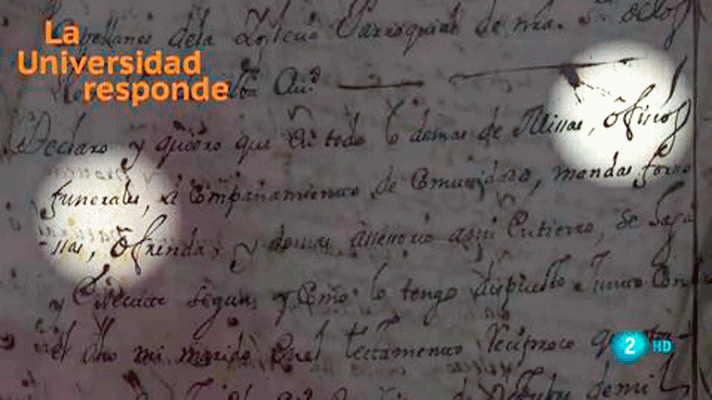 La
Universidad
responde
Capellanes de la Iglecia Parroquial de
Declaro y quiero que en todo lo demas de Missas, ôficios
funerales, acompañamiento de Comunidad, mandas forso
-ssas, ôfrenda, y demas assessorio a mi entierro, se haga
y execute segun y como lo tengo dispuesto
el dho mi marido en el testamento reciproco
de mil
2 HD